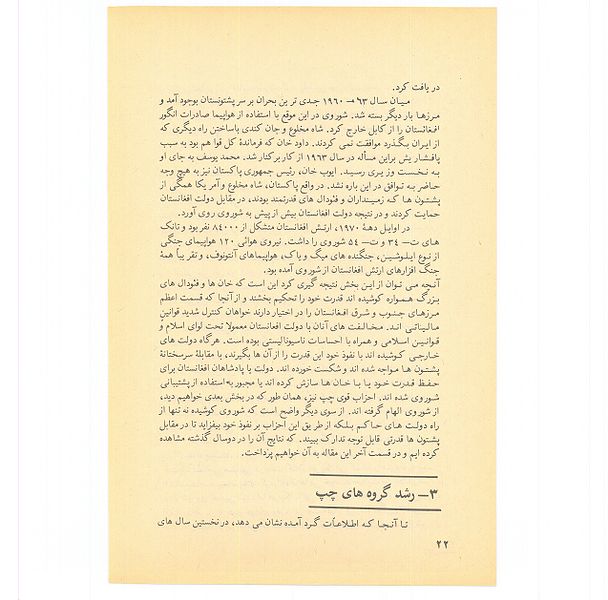 دریافت کرد.
میان سال ۶۳ – ۱۹۶۰ جدی ترین بحران بر سر پشتونستان بوجود آمد و
مرزها بار دیگر بسته شد. شوروی در این موقع با استفاده از هواپیما صادرات انگور
افغانستان را از کابل خارج کرد. شاه مخلوع و جان کندی باساختن راه دیگری که
از ایران بگذرد موافقت نمی کردند. داود خان که فرماندهٔ کل قوا هم بود به سبب
پافشاریش براین مسأله در سال ۱۹۶۳ از کار برکنار شد. محمد یوسف به جای او
به نخست وزیری رسید. ایوب خان، رئیس جمهوری پاکستان نیز به هیچ وجه
حاضر به توافق در این باره نشد. در واقع پاکستان، شاه مخلوع و آمریکا همگی از
پشتون ها که زمینداران و فئودال های قدرتمند بودند، در مقابل دولت افغانستان
حمایت کردند و در نتیجه دولت افغانستان بیش از پیش به شوروی روی آورد.
در اوایل دههٔ ۱۹۷۰، ارتش افغانستان متشکل از ۸۴۰۰۰ نفر بود و تانک
های ت– ۳۴ و ت– ۵۴ شوروی را داشت. نیروی هوائی ۱۲۰ هواپیمای جنگی
از نوع ایلوشین، جنگنده های میگ و یاک، هواپیماهای آنتونوف، و تقریباً همهٔ
جنگ افزارهای ارتش افغانستان از شوروی آمده بود.
آنچه می توان از این بخش نتیجه گیری کرد این است که خان ها و فئودال های
بزرگ همواره کوشیده اند قدرت خود را تحکیم بخشند و از آنجا که قسمت اعظم
مرزهای جنوب و شرق افغانستان را در اختیار دارند خواهان کنترل شدید قوانین
مالیاتی اند. مخالفت های آنان با دولت افغانستان معمولا تحت لوای اسلام و
قوانین اسلامی و همراه با احساسات ناسیونالیستی بوده است. هرگاه دولت های
خارجی کوشیده اند با نفوذ خود این قدرت را از آن ها بگیرند، با مقابلهٔ سرسختانهٔ
پشتون ها مواجه شده اند و شکست خورده اند. دولت یا پادشاهان افغانستان برای
حفظ قدرت خود یا با خان ها سازش کرده اند یا مجبور به استفاده از پشتیبانی
شوروی شده اند. احزاب قوی چپ نیز، همان طور که در بخش بعدی خواهیم دید،
از شوروی الهام گرفته اند. از سوی دیگر واضح است که شوروی کوشیده نه تنها از
راه دولت های حاکم بلکه از طریق این احزاب بر نفوذ خود بیفزاید تا در مقابل
پشتون ها قدرتی قابل توجه تدارک ببیند. که نتایج آن را در دوسال گذشته مشاهده
کرده ایم و در قسمت آخر این مقاله به آن خواهیم پرداخت.
۳– رشد گروه های چپ
تا آنجا که اطلاعات گرد آمده نشان می دهد، در نخستین سال های
۲۲